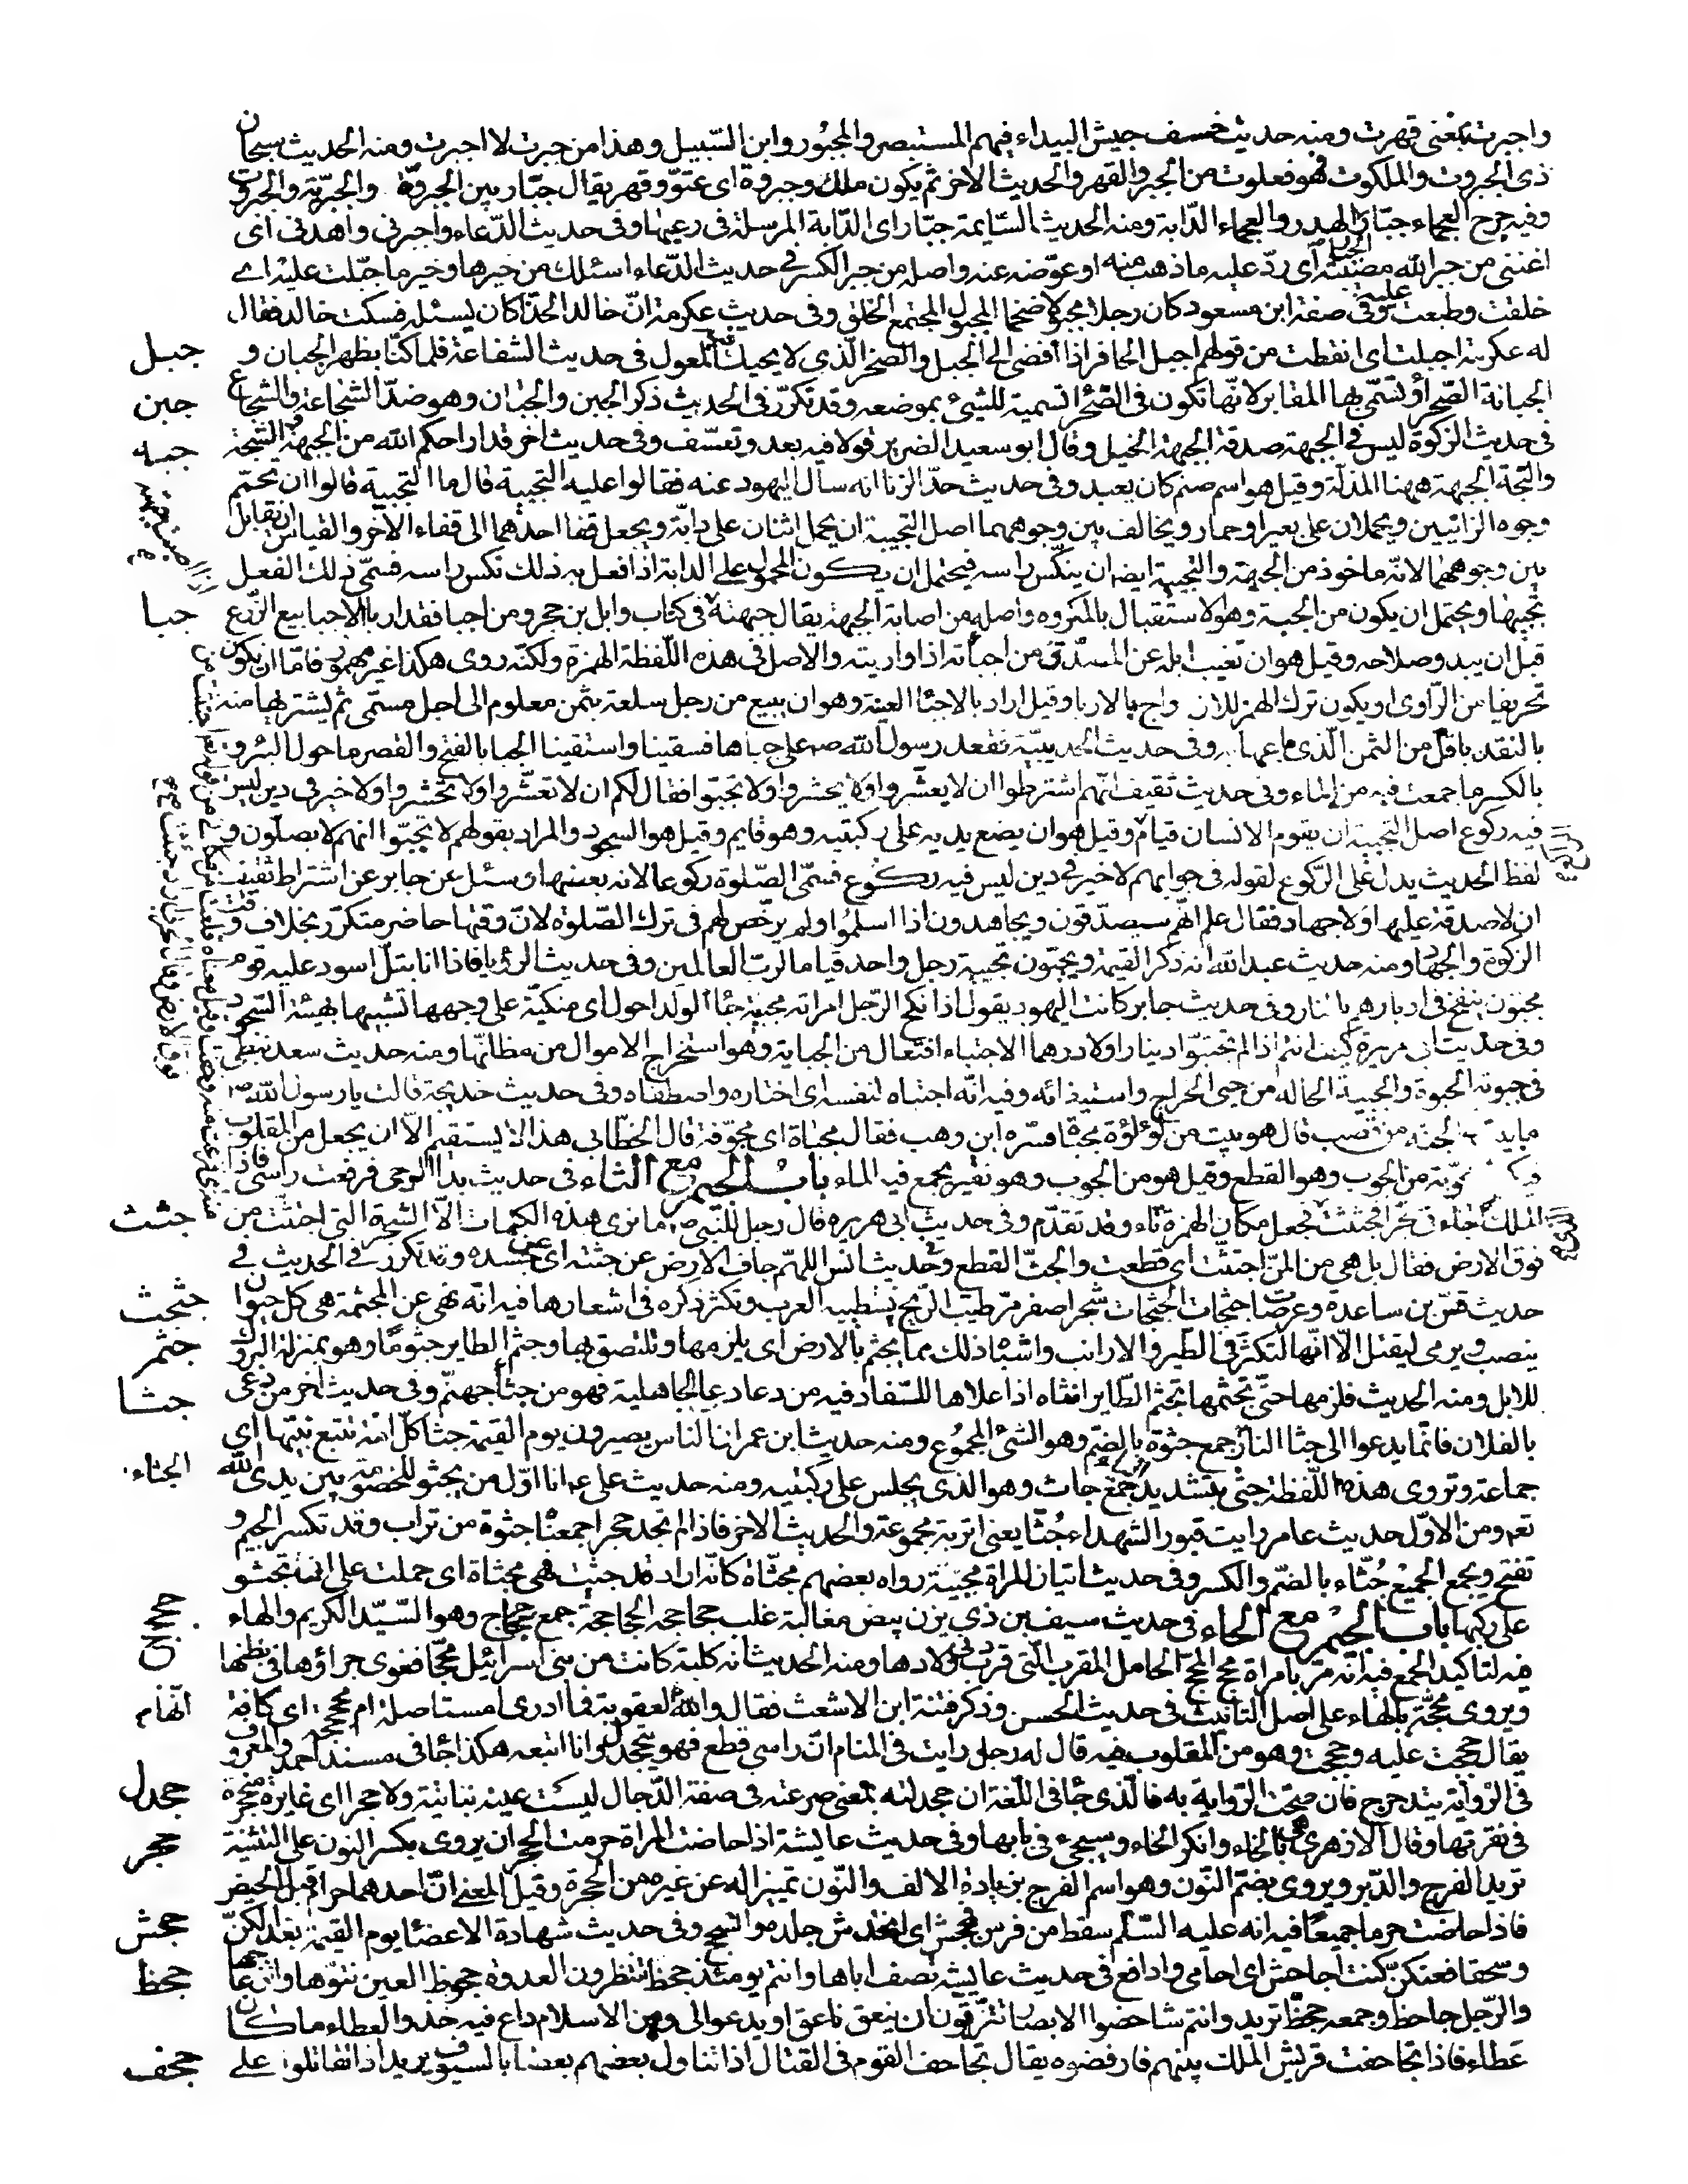 واجبرت بمعنى قهرت ومنه حديث خسف جيش البيداء فيهم المستبصر والمجبور وابن السّبيل وهذا من جبرت لا اجبرت ومنه الحديث سبحان
ذى الجبروت والملكوت هو فعلوت من الجبر والقهر والحديث الاخر ثم يكون ملك وجبروة اى عتوّ وقهر يقال جبّار بين الجبروّة والجبريّة والجبروت
وفيه جرح العجماء جبار اى هدر والعجماء الدّابة ومنه الحديث السّايمة جبار اى الدّابة المرسلة فى رعيها وفى حديث الدّعاء واجبرنى واهدنى اى
اغننى من جبر الله مصيبته اى ردّ عليه ما ذهب منه او عوّضه عنه واصله من جبر الكسر فى حديث الدّعاء اسئلك من خيرها وخير ما جبلت عليه اى
خلقت وطبعت عليه وفى صفة ابن مسعود كان رجلا مجبولا ضخما المجبول المجتمع الخلق وفى حديث عكرمة انّ خالد الحذّا كان يسئله فسكت خالد فقال
له عكرمة اجبلت اى انقطعت من قولهم اجبل الحافر اذا افضى الى الجبل والصخر الّذى لا يحيك فيه المعول فى حديث الشفاعة فلما كنا بظهر الجبان و
الجبانة الصّحراء وتسمّى بها المقابر لانّها تكون فى الصّحراء تسمية للشىء بموضعه وقد تكرّر فى الحديث ذكر الجبن والجبان وهو ضدّ الشّجاعة والشّجاع
فى حديث الزكوة ليس فى الجبهة صدقة الجبهة الخيل وقال ابو سعيد الضرير قولا فيه بعد وتعسّف وفى حديث اخر قد اراحكم الله من الجبهة والسّجة
والبجّة الجبهة ههنا المذلّة وقيل هو اسم صنم كان يعبد وفى حديث حدّ الزنا انه سال اليهود عنه فقالوا عليه التجبية قال ما التجبية قالوا ان تحمّم
وجوه الزانيين ويحملان على بعير او حمار ويخالف بين وجوههما اصل التجبية ان يحمل اثنان على دابّة ويجعل قفا احدهما الى قفاء الاخر والقياس ان يقابل
بين وجوههما لانّه ماخوذ من الجبهة والتجبية ايضا ان ينكّس راسه فيحتمل ان يكون المحمول على الدابة اذا فعل به ذلك نكس راسه فسمّى ذلك الفعل
تجبيها ويحتمل ان يكون من الجبه وهو الاستقبال بالمكروه واصله من اصابة الجبهة يقال جبهته فى كتاب وايل بن حجر ومن اجبا فقد اربا الاجبا بيع الزّرع
قبل ان يبدو صلاحه وقيل هو ان تغيب ابله عن المصّدّق من اجباته اذا واريته والاصل فى هذه اللّفظة الهمزة ولكنّه روى هكذا غير مهموز فامّا ان يكون
تحريفا من الرّاوى او يكون ترك الهمز للازدواج بالاربا وقيل اراد بالاجبا العينة وهو ان يبيع من رجل سلعة بثمن معلوم الى اجل مسمّى ثم يشتريها منه
بالنقد باقل من الثمن الّذى باعها به وفى حديث الحديبيّة فقعد رسول الله صم على جباها فسقينا واستقينا الجبا بالفتح والقصر ما حول البئر و
بالكسر ما جمعت فيه من الماء وفى حديث ثقيف انّهم اشترطوا ان لا يعشّروا ولا يحشروا ولا يجبّوا فقال لكم ان لا تعشّروا ولا تحشروا ولا خير فى دين ليس
فيه ركوع اصل التجبية ان يقوم الانسان قيام وقيل هو ان يضع يديه على ركبتيه وهو قايم وقيل هو السجود والمراد بقولهم لا يجبّوا انهم لا يصلّون و
لفظ الحديث يدل على الرّكوع لقوله فى جوابهم لا خير فى دين ليس فيه ركوع فسمّى الصّلوة ركوعا لانه بعضها وسئل عن جابر عن اشتراط ثقيف
ان لا صدقة عليها ولا جهاد فقال علم انّهم سيصدّقون ويجاهدون اذا اسلموا ولم يرخّص لهم فى ترك الصّلوة لانّ وقتها حاضر متكرّر بخلاف وقت
الزكوة والجهاد ومنه حديث عبد الله انه ذكر القيمة ويجبّون تجبية رجل واحد قياما لربّ العالمين وفى حديث الرؤيا فاذا انا بتلّ اسود عليه قوم
مجبّون ينفخ فى ادبارهم بالنار وفى حديث جابر كانت اليهود يقول اذا نكح الرّجل امراته مجبية جاء الولد احول اى منكبّة على وجهها تشبيها بهيئة السّجود
وفى حديث ابى هريرة كيف انتم اذا لم تجتبوا دينارا ولا درهما الاجتباء افتعال من الجباية وهو استخراج الاموال من مظانّها ومنه حديث سعد
فى جبوته الجبوة والجبية الحالة من جبى الخراج واستيفائه وفيه انّه اجتباه لنفسه اى اختاره واصطفاه وفى حديث خديجة قالت يا رسول الله صم
ما بيت فى الجنّة من قصب قال هو بيت من لؤلؤة مجباة فسّره ابن وهب فقال مجباة اى مجوّفة قال الخطّابى هذا لا يستقيم الّا ان يجعل من المقلوب
من الجوب وهو القطع وقيل هو من الجوب وهو نقير يجمع فيه الماء باب الجيم مع الثاء فى حديث بدا الوحى فرفعت راسى فاذا
الملك جاء فى حرا فجثثت يجعل مكان الهمزة ثاء وقد تقدّم وفى حديث ابى هريره قال رجل للنّبى صم ما نرى هذه الكمات الّا الشجرة التى اجتثت من
فوق الارض فقال بل هى من المنّ اجتثت اى قطعت والجثّ القطع وفى حديث انس اللهمّ جاف الارض عن جثته اى عن جسده وقد تكرر فى الحديث فى
حديث قسّ بن ساعدة وعرصات جثجاث الجثجاث شجر اصفر مرّ طيّب الريح يستطيبه العرب وتكثر ذكره فى اشعارها فيه انّه نهى عن المجثمة هى كل حيوان
ينصب ويرمى ليقتل الّا انّها تكثر فى الطّير والارانب واشباه ذلك مما يجثم بالارض اى يلزمها ويلتصق بها وجثم الطاير جثوما وهو بمنزلة البروك
للابل ومنه الحديث فلزمها حتى تجثمها تجثم الطّاير انثاه اذا علاها للسّفاد فيه من دعا دعا الجاهلية فهو من جثا جهنّم وفى حديث اخر من دعى
بالفلان فانما يدعوا الى جثا النار جمع جثوة بالضم وهو الشىء المجموع ومنه حديث ابن عمر انا الناس يصيرون يوم القيمة جثا كلّ امّة تتبع نبيّها اى
جماعة وتروى هذه اللّفظة جثى بتشديد الياء جمع جاث وهو الذى يجلس على ركبتيه ومنه حديث على عم انا اوّل من يجثو للخصومة بين يدى الله
تعم ومن الاوّل حديث عامر رايت قبور الشهداء جُثا يعنى اتربة مجموعة والحديث الاخر فاذا لم نجد حجرا جمعنا جثوة من تراب وقد تكسر الجيم و
تفتح ويجمع الجميع جُثّاء بالضمّ والكسر وفى حديث اتيان المراة مجبّية رواه بعضهم مجثّاة كانّه اراد قد جثيت فهى مجثاة اى حملت على ان تجثو
على ركبها باب الجيم مع الحاء فى حديث سيف بن ذى يزن بيض مغالبة غلب جحاجحة الجحاجحة جمع جحجاح وهو السّيّد الكريم والهاء
فيه لتاكيد الجمع فيه انّه مرّ بامراة مجح المجحّ الحامل المقرب الّتى قرب ولادها ومنه الحديث انه كلبة كانت من بنى اسرائيل مجحّا فعوى جراؤها فى بطنها
ويروى مجحّة بالهاء على اصل التانيث فى حديث الحسن وذكر فتنة ابن الاشعث فقال والله لعقوبة فما ادرى امستاصلة ام مجحجحة اى كافة
يقال جحجحت عليه وحجحجت وهو من المقلوب فيه قال له رجل رايت فى المنام انّ راسى قطع فهو يتجحدل وانا اتبعه هكذا جاء فى مسند احمد والمعروف
فى الرّواية يتدحرج فان صحّت الرّواية به فالّذى جاء فى اللّغة ان جحدلته بمعنى صرعته فى صفة الدّجال ليست عينه بناتئة ولا جحرا اى غايرة منجحرة
فى نقرتها وقال الازهرى هى بالخاء وانكر الحاء وسيجىء فى بابها وفى حديث عايشة اذا حاضت المراة حرمت الجحران يروى بكسر النون على التثنية
تريد الفرج والدّبر ويروى بضمّ النّون وهو اسم الفرج بزيادة الالف والنّون تمييزا له عن غيره من الجحرة وقيل المعنى انّ احدهما حرام قبل الحيض
فاذا حاضت حرما جميعا فيه انه عليه السّلم سقط من فرس فجحش اى انخدش جلده وانسحج وفى حديث شهادة الاعضا يوم القيمة بعدا لكنّ
وسحقا فعنكنّ كنت اجاحش اى احامى وادافع فى حديث عايشة تصف اباها وانتم يومئذ جحظ تنتظرون العدوة جحوظ العين نتؤها وانزعاجها
والرّجل جاحظ وجمعه جحظ تريد وانتم شاخصوا الابصار تترقّبون ان ينعق ناعق او يدعو الى وهن الاسلام داع فيه خذوا العطاء ما كان
عطاء فاذا تجاحفت قريش الملك بينهم فارفضوه يقال تجاحف القوم فى القتال اذا تناول بعضهم بعضا بالسيوف يريد اذا تقاتلوا على
جبل
جبن
جبه
جبا
جثث
جثجث
جثم
جثا
الجثاء
جحجح
جحدل
جحر
جحش
جحظ
جحف